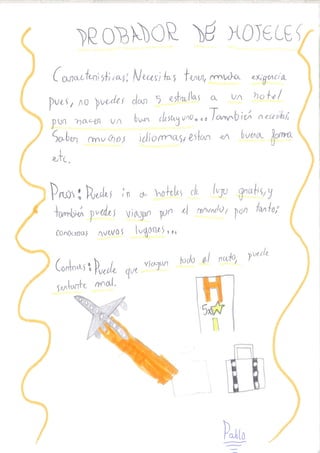 PROBADOR DE HOTELES
Características: Necesitas tener mucha exigencia
pues, no puedes dar 5 estrellas a un hotel
por hacer un buen desayuno... También necesitas
Saber muchos idiomas, estar en buena forma
etc.
Pros: Puedes ir a hoteles de lujo gratis, y
también puedes viajar por el mundo, por tanto;
conocemos nuevos lugares...
Contras: Puede que viajar todo el rato, puede
sentarte mal.
H
5x
Pablo